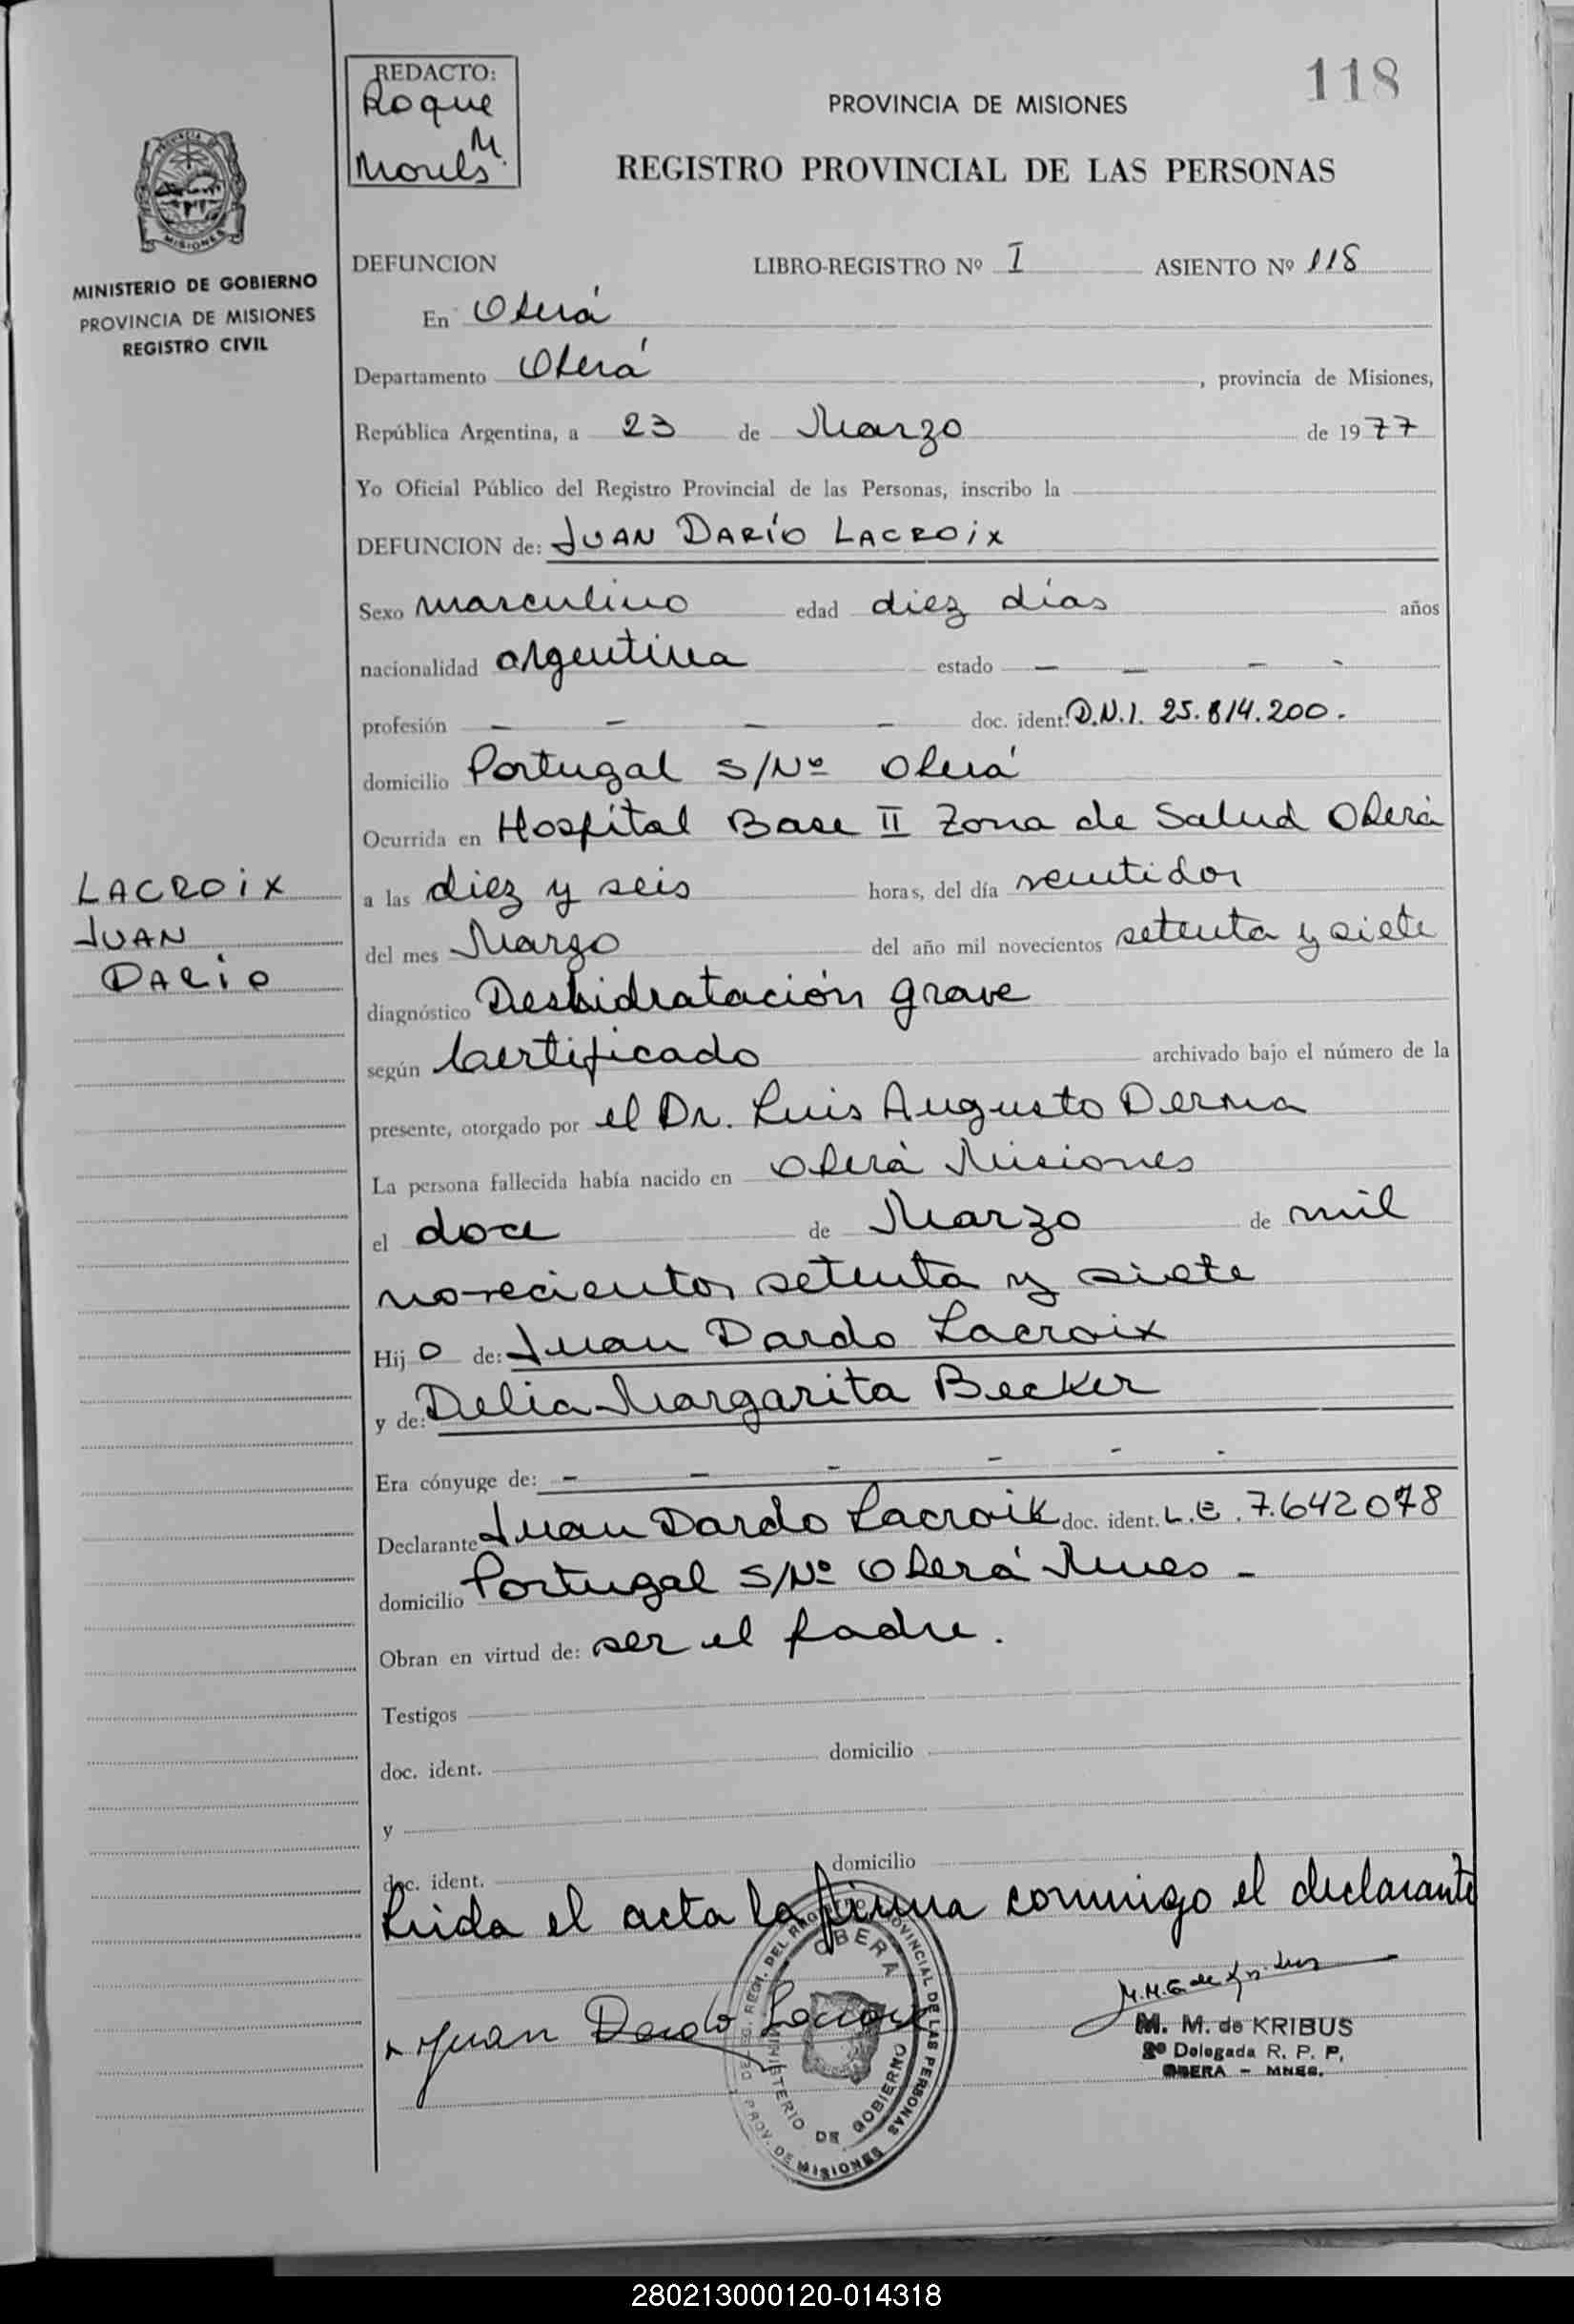 118
REDACTO:
Roque
M.
PROVINCIA DE MISIONES
REGISTRO PROVINCIAL DE LAS PERSONAS
MISIONES
MINISTERIO DE GOBIERNO
PROVINCIA DE MISIONES
REGISTRO CIVIL
DEFUNCION LIBRO-REGISTRO Nº I ASIENTO Nº 118
En Oberá
Departamento Oberá, provincia de Misiones,
República Argentina, a 23 de Marzo de 1977
Yo Oficial Público del Registro Provincial de las Personas, inscribo la
DEFUNCION de: JUAN DARÍO LACROIX
Sexo masculino edad diez días años
nacionalidad argentina estado — — — -
profesión — — — — doc. ident. D.N.I. 25.814.200.
domicilio Portugal S/Nº Oberá
Ocurrida en Hospital Base II Zona de Salud Oberá
a las diez y seis horas, del día veintidos
del mes Marzo del año mil novecientos setenta y siete
LACROIX
JUAN
DARIO
diagnóstico Deshidratación grave
según Certificado archivado bajo el número de la
presente, otorgado por el Dr. Luis Augusto Derna
La persona fallecida había nacido en Oberá Misiones
el doce de Marzo de mil
novecientos setenta y siete
Hijo de: Juan Dardo Lacroix
y de: Delia Margarita Becker
Era cónyuge de: — — — — - -
Declarante Juan Dardo Lacroix doc. ident. L.E. 7.642078
domicilio Portugal S/Nº Oberá Mnes -
Obran en virtud de: ser el padre.
Testigos
doc. ident. domicilio
y
doc. ident. domicilio
Leida el acta la firma conmigo el declarante
Juan Dardo Lacroix
DELEG. REGI. DEL REGISTRO PROVINCIAL DE LAS PERSONAS
OBERA
MINISTERIO DE GOBIERNO
PROV. DE MISIONES
M. M. de KRIBUS
2º Delegada R. P. P.
OBERA - MNES.
280213000120-014318